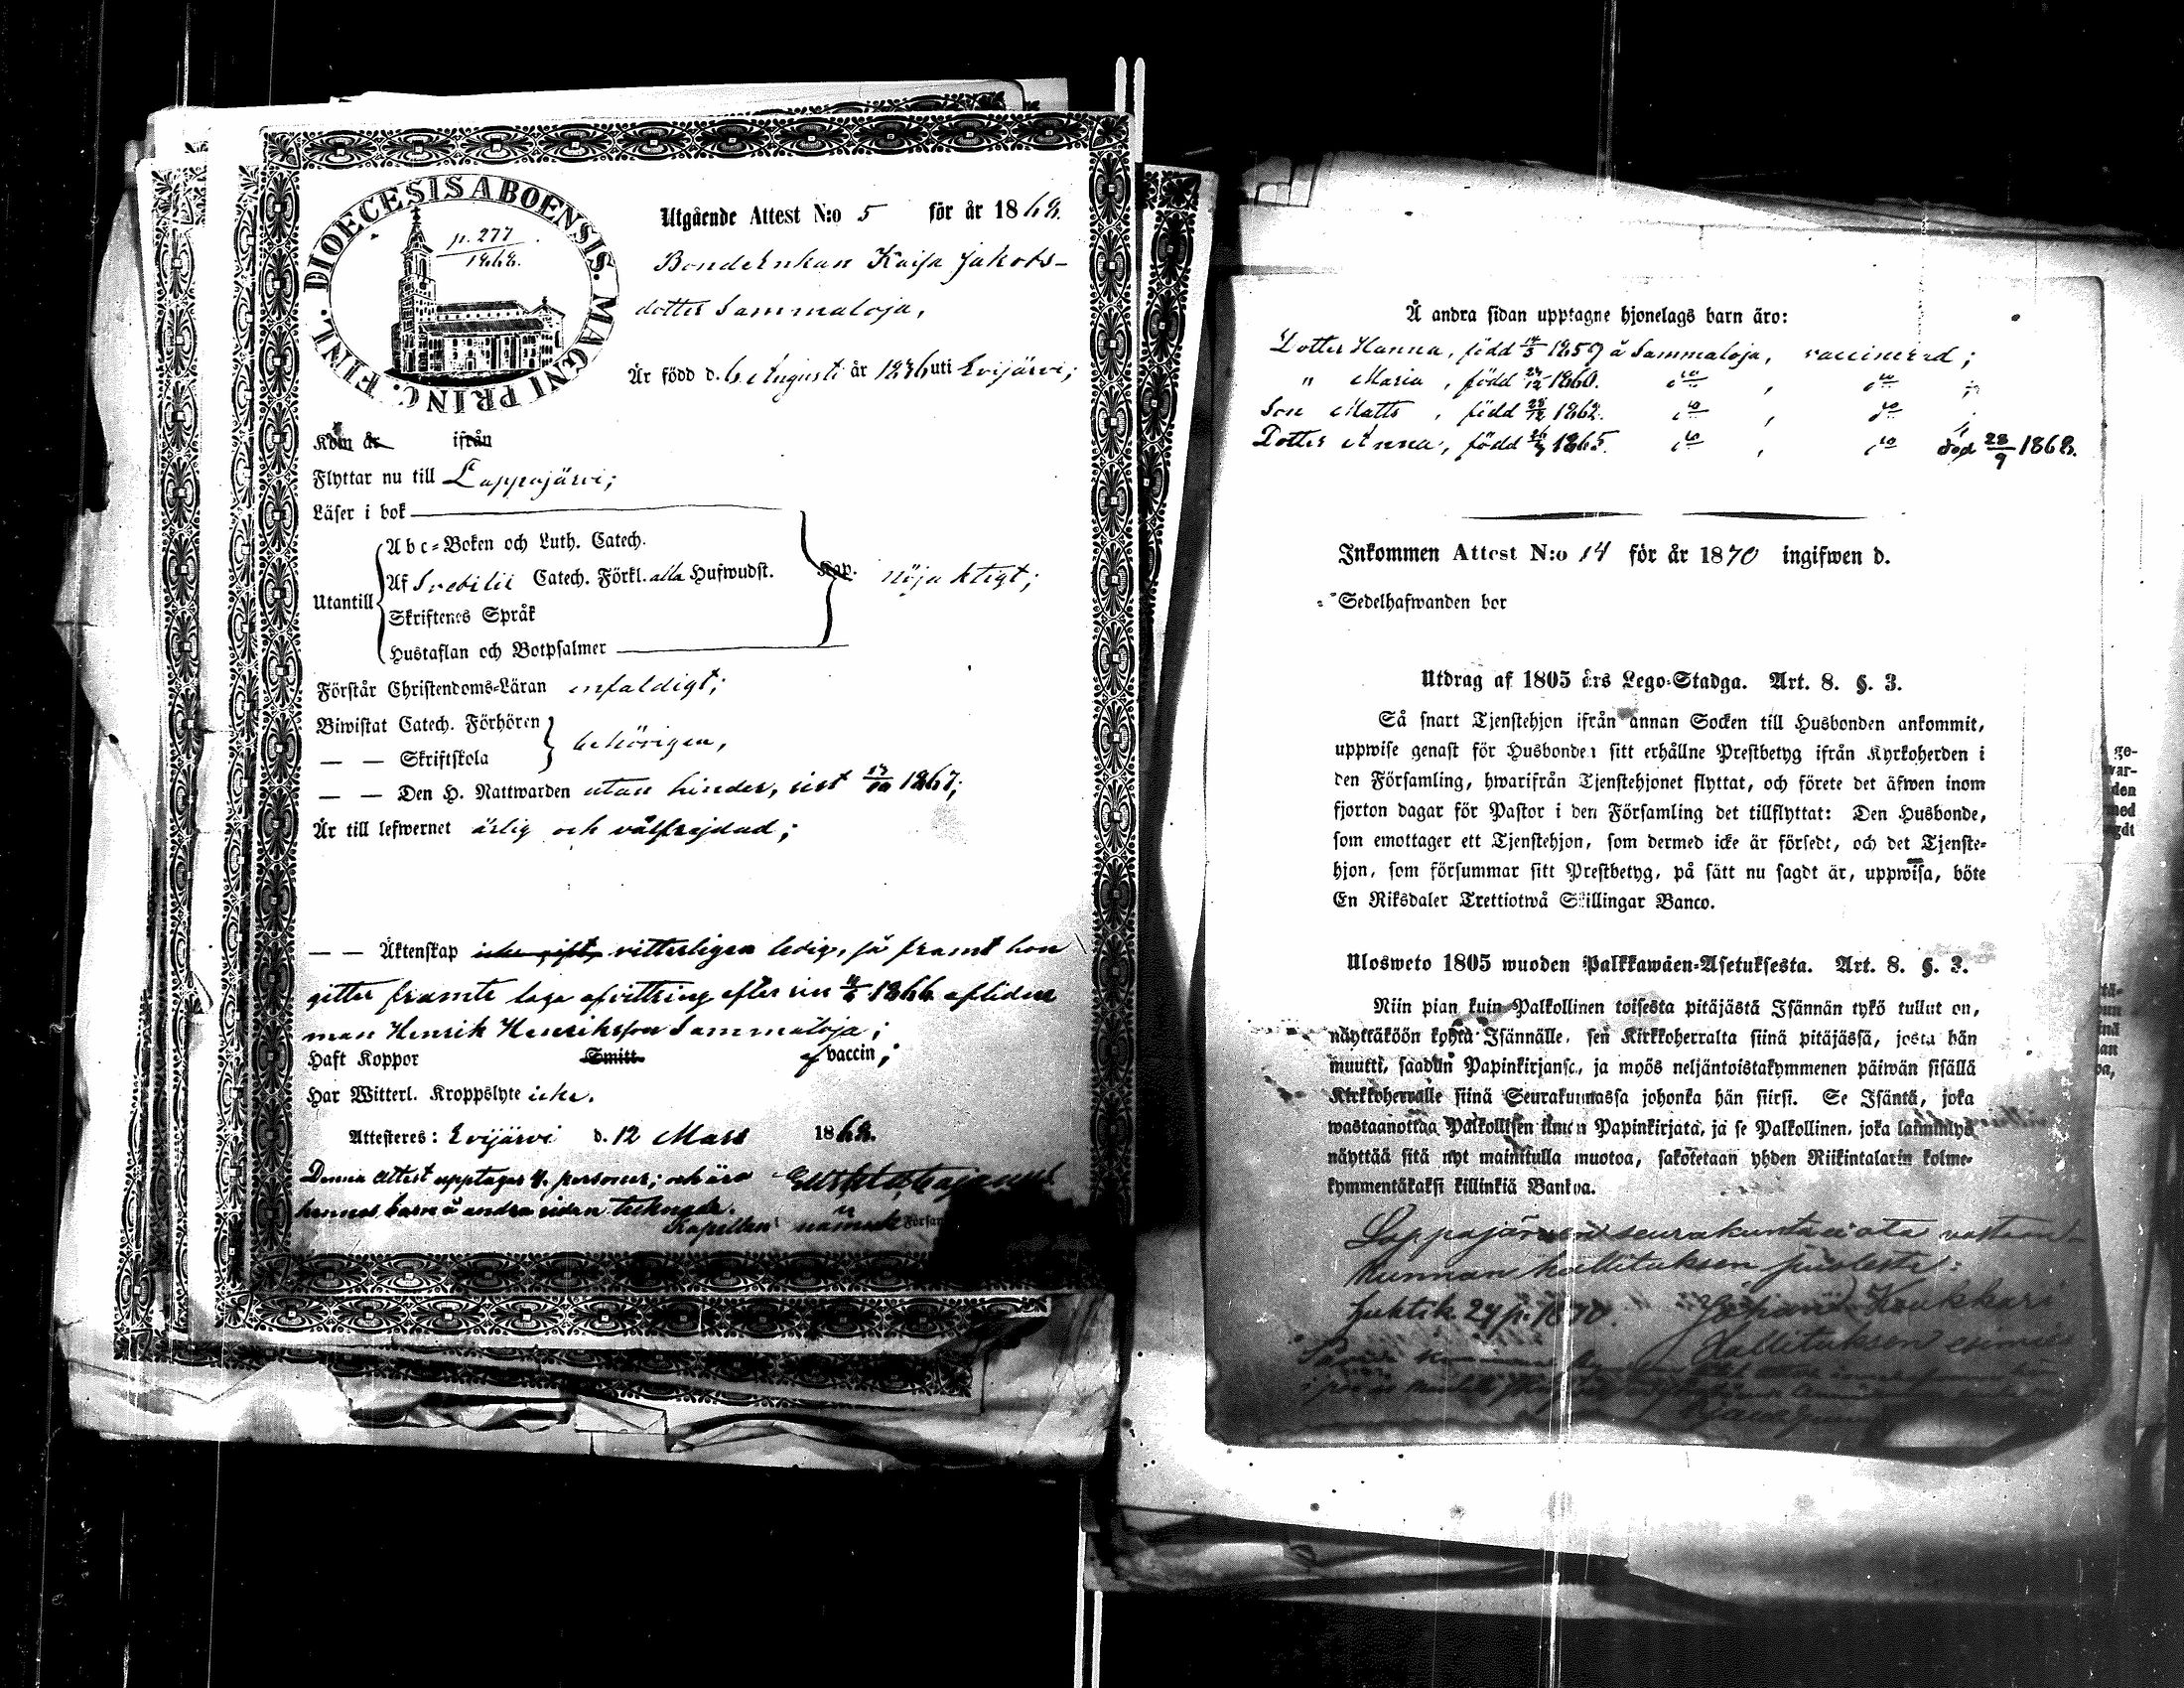 DIOECESIS ABOENSIS. MAGNI PRINC. FINL.
p. 277
1868.
Utgående Attest N:o 5 för år 1868.
Bondeenkan Kajsa Jakobs-
dotter Sammaloja,
Är född d. 6 Augusti år 1836 uti Evijärvi;
Kom år ifrån
Flyttar nu till Lappajärvi;
Läser i bok
Utantill
Abc=Boken och Luth. Catech.
Af Svebilii Catech. Förkl. alla Hufwudst. Kap. nöjaktigt;
Skriftenes Språk
Hustaflan och Botpsalmer
Förstår Christendoms=Läran enfaldigt;
Biwistat Catech. Förhören
— — Skriftskola behörigen,
— — Den H. Nattwarden utan hinder, sist 13/10 1867;
Är till lefwernet ärlig och välfrejdad;
— — Äktenskap icke gift, vitterligen ledig, så framt hon
gitter framte laga afvittring efter sin 4/6 1866 aflidne
man Henrik Henriksson Sammaloja;
Haft Koppor Smitt. vaccin;
Har Witterl. Kroppslyte icke.
Attesteres: Evijärvi d. 12 Mars 1868.
Denna Attest upptager 4. personer; och äro
hennes barn å andra sidan tecknade.
Kapellan
Å andra sidan upptagne hjonelags barn äro:
Dotter Hanna, född 14/5 1859 å Sammaloja, vaccinerad;
" Maria, född 24/12 1860. d:o, d:o;
Son Matts, född 28/12 1862. d:o, d:o;
Dotter Anna, född 26/7 1865. d:o, d:o död 28/9 1868.
Inkommen Attest N:o 14 för år 1870 ingifwen d.
Sedelhafwanden bor
Utdrag af 1805 års Lego=Stadga. Art. 8. §. 3.
Så snart Tjenstehjon ifrån annan Socken till Husbonden ankommit,
uppwise genast för Husbonden sitt erhållne Prestbetyg ifrån Kyrkoherden i
den Församling, hwarifrån Tjenstehjonet flyttat, och förete det äfwen inom
fjorton dagar för Pastor i den Församling det tillflyttat: Den Husbonde,
som emottager ett Tjenstehjon, som dermed icke är försedt, och det Tjenste=
hjon, som försummar sitt Prestbetyg, på sätt nu sagdt är, uppwisa, böte
En Riksdaler Trettiotwå Skillingar Banco.
Ulosweto 1805 wuoden Palkkawäen=Asetuksesta. Art. 8. §. 3.
Niin pian kuin Palkollinen toisesta pitäjästä Isännän tykö tullut on,
näyttäköön kohta Isännälle, sen Kirkkoherralta siinä pitäjässä, josta hän
muutti, saadun Papinkirjansa, ja myös neljäntoistakymmenen päiwän sisällä
Kirkkoherralle siinä Seurakunnassa johonka hän siirsi. Se Isäntä, joka
wastaanottaa Palkollisen ilman Papinkirjata, ja se Palkollinen, joka laiminlyö
näyttää sitä nyt mainitulla muotoa, sakotetaan yhden Riikintalarin kolme=
kymmentäkaksi killinkiä Bankoa.
Lappajärven seurakunta ei ota vastaan
kunnan hallituksen puolesta:
1870. Johan Kaukkari
Hallituksen esimies